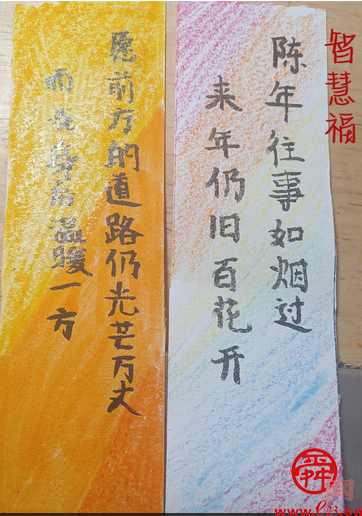 智慧福
陈年往事如烟过
来年仍旧百花开
愿前方的道路仍光芒万丈
而身后温暖一方
舜网